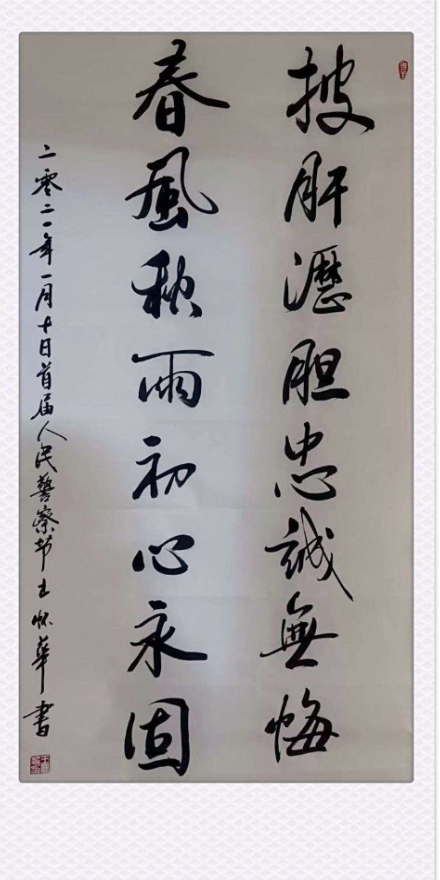 披肝瀝胆忠誠無悔
春風秋雨初心永固
二零二一年一月十日首届人民警察节王怀華書